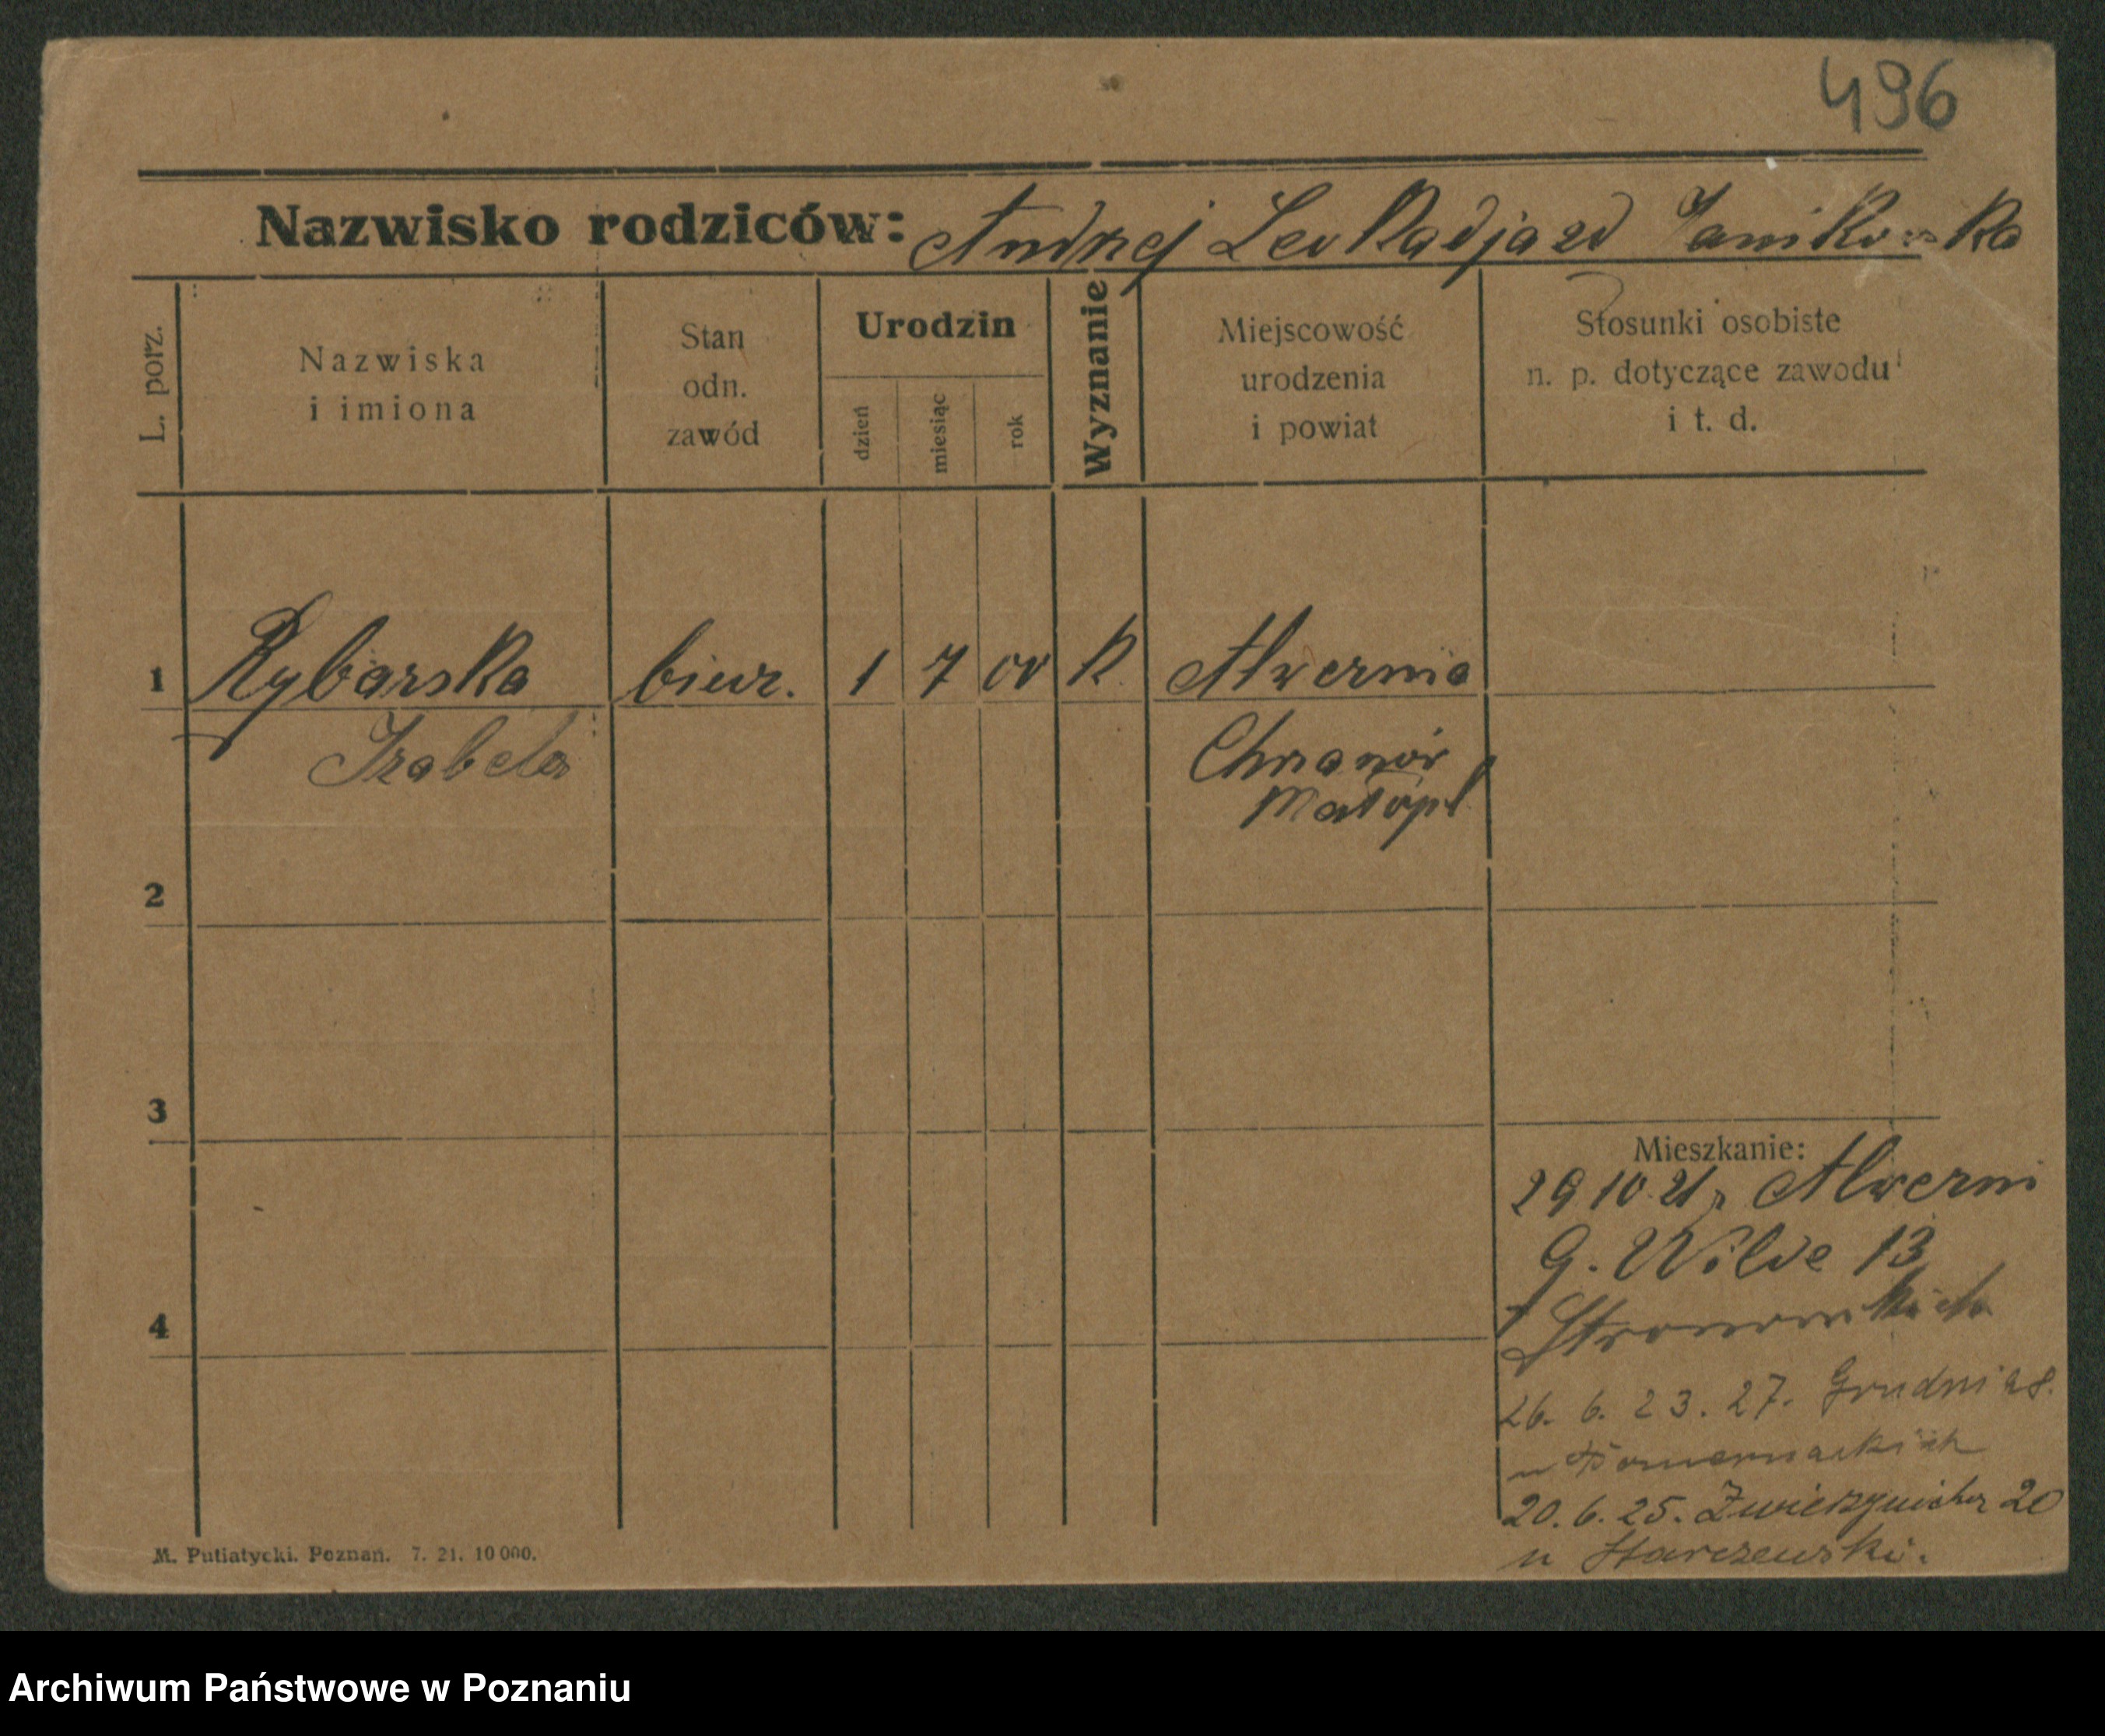 496
Nazwisko rodziców: Andrzej Janikowska
L. porz.
Nazwiska
i imiona
Stan
odn.
zawód
Urodzin
dzień
miesiąc
rok
Wyznanie
Miejscowość
urodzenia
i powiat
Stosunki osobiste
n. p. dotyczące zawodu
i t. d.
1 Rybarska biur. 1 7 00 k Alwernia
Izabela
Małopl
2
3
4
Mieszkanie:
29 10 21 Alwerni
G. Wilde 13
26. 6. 23. 27. Grudnia 8.
u
20. 6. 25. Zwierzyniecka 20
u Starczewski.
M. Putiatycki. Poznań. 7. 21. 10 000.
Archiwum Państwowe w Poznaniu